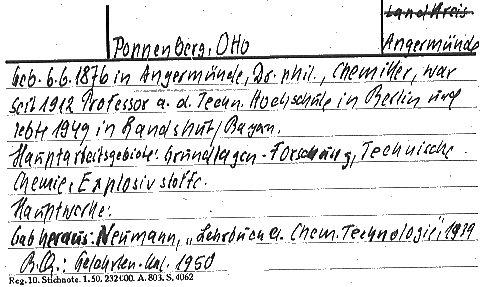 Landkreis
Poppenberg, Otto
Angermünde
Geb. 6.6.1876 in Angermünde, Dr. phil., Chemiker, war
seit 1912 Professor a. d. Techn. Hochschule in Berlin und
lebte 1949 in Landshut/Bayern.
Hauptarbeitsgebiete: Grundlagen-Forschung, Technische
Chemie, Explosivstoffe.
Hauptwerke:
Gab heraus: Neumann, „Lehrbuch d. Chem. Technologie", 1939
B.Q.: Gelehrten-Kal. 1950
Reg. 10. Stichnote. 1. 50. 232100. A. 803. S. 4062